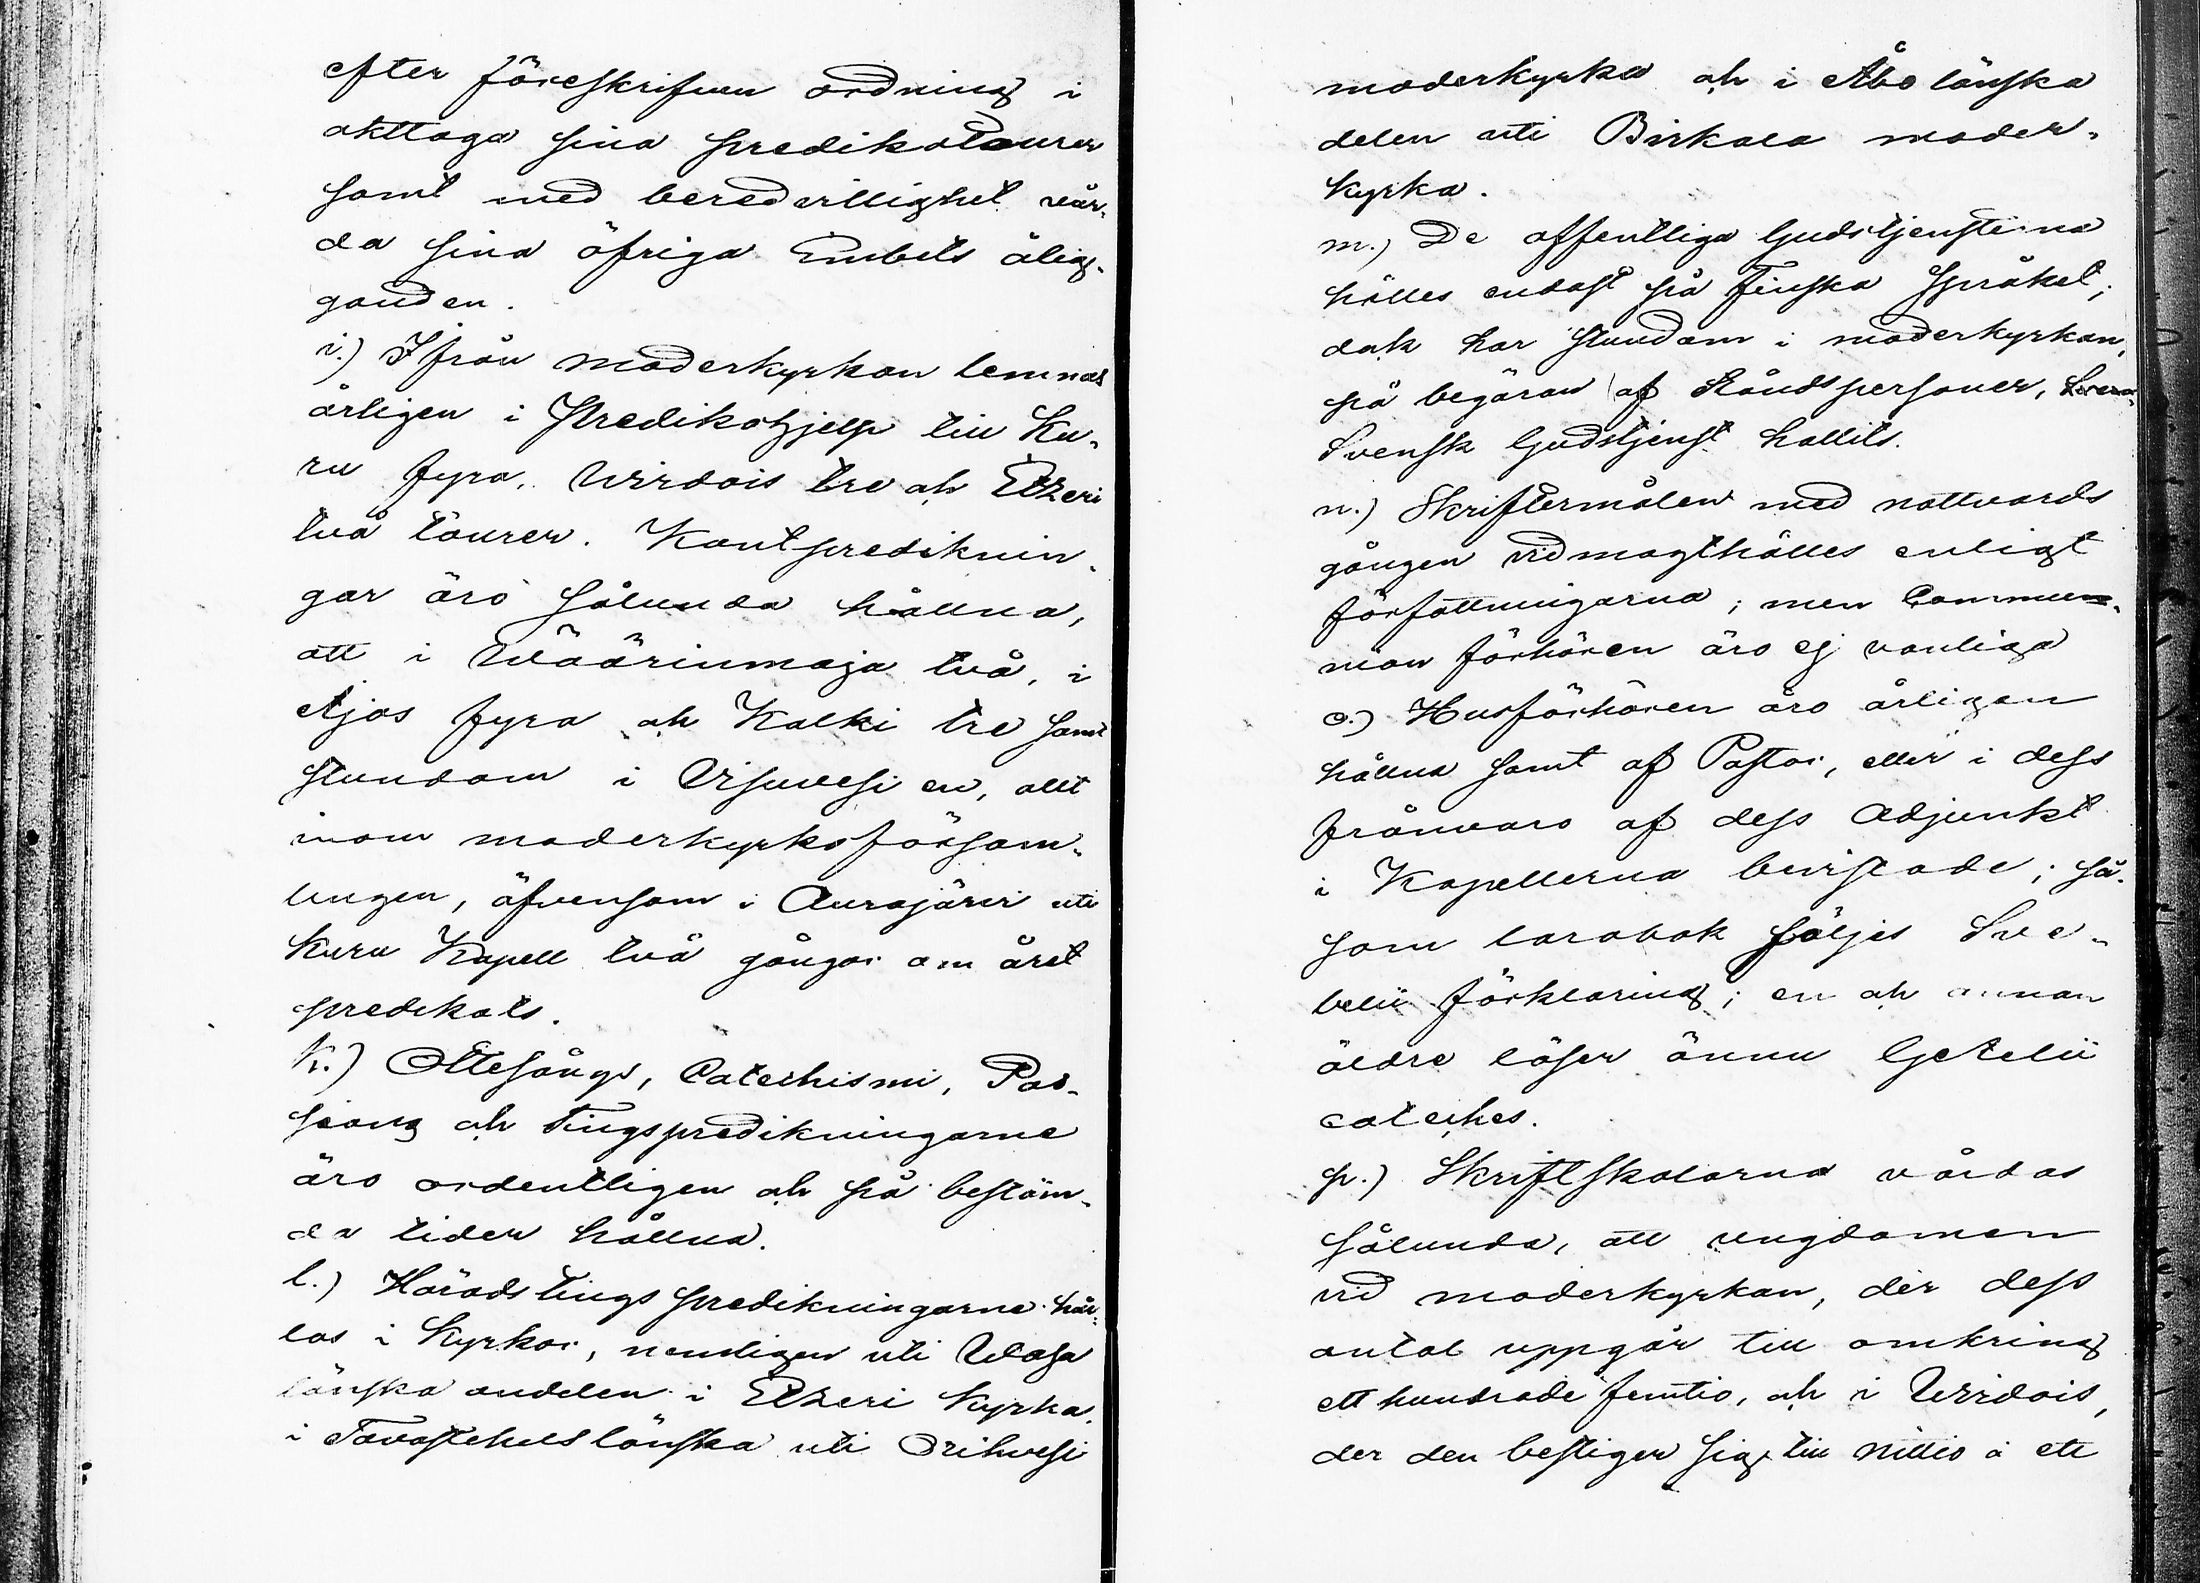 efter föreskrifven ordning i
akttaga sina predikotourer
samt med beredvillighet vår-
da sina öfriga Embets ålig-
ganden.
i.) Ifrån moderkyrkan lemnas
årligen i Predikohjelp till Ku-
ru fyra, Wirdois tre och Etzeri
två tourer. Kantprediknin-
gar äro sålunda hållna,
att i Wäärinmaja två, i
Ajos fyra och Kalki tre samt
stundom i Visuvesi en, allt
inom moderkyrkoförsam-
lingen, äfvensom i Aurajärvi uti
Kuru Kapell två gångor om året
predikats.
k.) Ottesångs, Catechismi, Pas-
sions och Tingspredikningarne
äro ordentligen och på bestäm-
da tider hållna.
l.) Häradstings predikningarne hål-
las i Kyrkor, nemligen uti Wasa
länska andelen i Etzeri Kyrka,
i Tavastehus länska uti Orihvesi
moderkyrka och i Åbo länska
delen uti Birkala moder-
kyrka.
m.) De offentliga Gudstjensterna
hålles endast på Finska Språket;
dock har stundom i moderkyrkan,
på begäran af Ståndspersoner,
Svensk Gudstjenst hållits.
n.) Skriftermålen med nattvards
gången vidmagthålles enligt
författningarna; men Commun-
nion förhören äro ej vanliga
o.) Husförhören äro årligen
hållna samt af Pastor, eller i dess
frånvaro af dess Adjunkt
i Kapellerna bevistade; så-
som larobok följes Sve-
belii förklaring; en och annan
äldre läser ännu Gezelii
cateches.
p.) Skriftskolorna vårdas
sålunda, att ungdomen
vid moderkyrkan, der dess
antal uppgår till omkring
ett hundrade femtio, och i Wirdois,
der den bestiger sig till nittio à ett